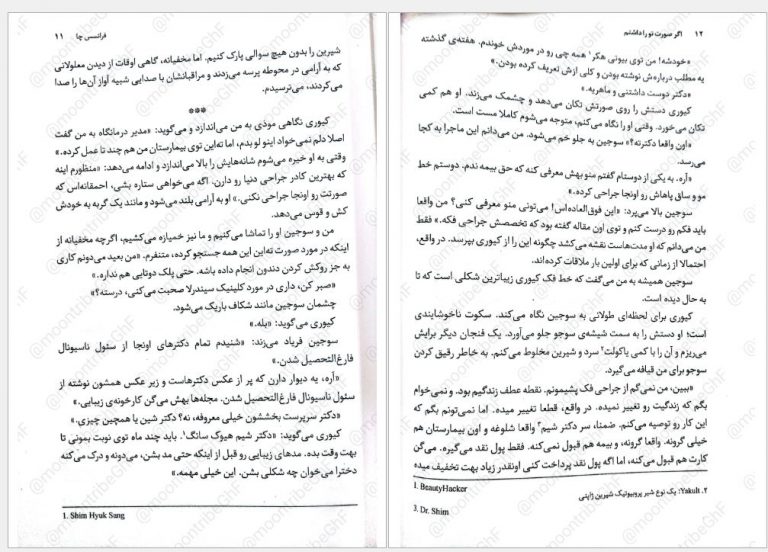 فرانسس چا ۱۱
شیرین را بدون هیچ سوالی پارک کنیم. اما مخفیانه، گاهی اوقات از دیدن معلولانی
که به آرامی در محوطه پرسه می‌زدند و مراقبانشان با صدایی شبیه آواز آن‌ها را صدا
می‌کردند، می‌ترسیدم.
***
کیوری نگاهی موذی به من می‌اندازد و می‌گوید: «مدیر درمانگاه به من گفت
اصلا دلم نمی‌خواد اینو لو بدم، اما ته‌این توی بیمارستان من هم چند تا عمل کرده.»
وقتی به او خیره می‌شوم شانه‌هایش را بالا می‌اندازد و ادامه می‌دهد: «منظورم اینه
که بهترین کادر جراحی دنیا رو دارن. اگه می‌خواهی ستاره بشی، احمقانه‌اس که
صورتت رو اونجا جراحی نکنی.» او به آرامی بلند می‌شود و مانند یک گربه به خودش
کش و قوس می‌دهد.
من و سوجین او را تماشا می‌کنیم و ما نیز خمیازه می‌کشیم، اگرچه مخفیانه از
اینکه در مورد صورت ته‌این این همه جستجو کرده، متنفرم. «من بعید می‌دونم کاری
به جز روکش کردن دندون انجام داده باشه. حتی پلک دوتایی هم نداره.»
«صبر کن، داری در مورد کلینیک سیندرلا صحبت می‌کنی، درسته؟»
چشمان سوجین مانند شکاف باریک می‌شود.
کیوری می‌گوید: «بله.»
سوجین فریاد می‌زند: «شنیدم تمام دکترهای اونجا از سئول ناسیونال
فارغ‌التحصیل شدن.»
«آره، یه دیوار دارن که پر از عکس دکترهاست و زیر عکس همشون نوشته از
سئول ناسیونال فارغ‌التحصیل شدن. مجله‌ها بهش می‌گن کارخونه‌ی زیبایی.»
«دکتر سرپرست بخششون خیلی معروفه، نه؟ دکتر شین یا همچین چیزی.»
کیوری می‌گوید: «دکتر شیم هیوک سانگ¹. باید چند ماه توی نوبت بمونی تا
بهت وقت بده. مدهای زیبایی رو قبل از اینکه حتی مد بشن، می‌دونه و درک می‌کنه
دخترا می‌خوان چه شکلی بشن. این خیلی مهمه.»
1. Shim Hyuk Sang
۱۲ اگر صورت تو را داشتم
«خودشه! من توی بیوتی هکر¹ همه چی رو در موردش خوندم. هفته‌ی گذشته
یه مطلب درباره‌ش نوشته بودن و کلی ازش تعریف کرده بودن.»
«دکتر دوست داشتنی و ماهریه.»
کیوری دستش را روی صورتش تکان می‌دهد و چشمک می‌زند. او هم کمی
تکان می‌خورد. وقتی او را نگاه می‌کنم، متوجه می‌شوم کاملا مست است.
«اون واقعا دکترته؟» سوجین به جلو خم می‌شود. من می‌دانم این ماجرا به کجا
می‌رسد.
«آره. به یکی از دوستام گفتم منو بهش معرفی کنه که حق بیمه ندم. دوستم خط
مو و ساق پاهاش رو اونجا جراحی کرده.»
سوجین بالا می‌پرد: «این فوق‌العاده‌اس! می‌تونی منو معرفی کنی؟ من واقعا
باید فکم رو درست کنم و توی اون مقاله گفته بود که تخصصش جراحی فکه.» فقط
من می‌دانم که او مدت‌هاست نقشه می‌کشد چگونه این را از کیوری بپرسد. در واقع،
احتمالا از زمانی که برای اولین بار ملاقات کرده‌اند.
سوجین همیشه به من می‌گفت که خط فک کیوری زیباترین شکلی است که تا
به حال دیده است.
کیوری برای لحظه‌ای طولانی به سوجین نگاه می‌کند. سکوت ناخوشایندی
است؛ او دستش را به سمت شیشه‌ی سوجو جلو می‌آورد. یک فنجان دیگر برایش
می‌ریزم و آن را با کمی یاکولت² سرد و شیرین مخلوط می‌کنم. به خاطر رقیق کردن
سوجو برای من قیافه می‌گیرد.
«ببین، من نمی‌گم از جراحی فک پشیمونم. نقطه عطف زندگیم بود. و نمی‌خوام
بگم که زندگیت رو تغییر نمیده. در واقع، قطعا تغییر میده. اما نمی‌تونم بگم که
این کار رو توصیه می‌کنم. ضمنا، سر دکتر شیم³ واقعا شلوغه و اون بیمارستان هم
خیلی گرونه. واقعا گرونه، و بیمه هم قبول نمی‌کنه. فقط پول نقد می‌گیره. می‌گن
کارت هم قبول می‌کنه، اما اگه پول نقد پرداخت کنی اونقدر زیاد بهت تخفیف میده
1. BeautyHacker
۲. Yakult: یک نوع شیر پروبیوتیک شیرین ژاپنی
3. Dr. Shim
@moontribeGhF